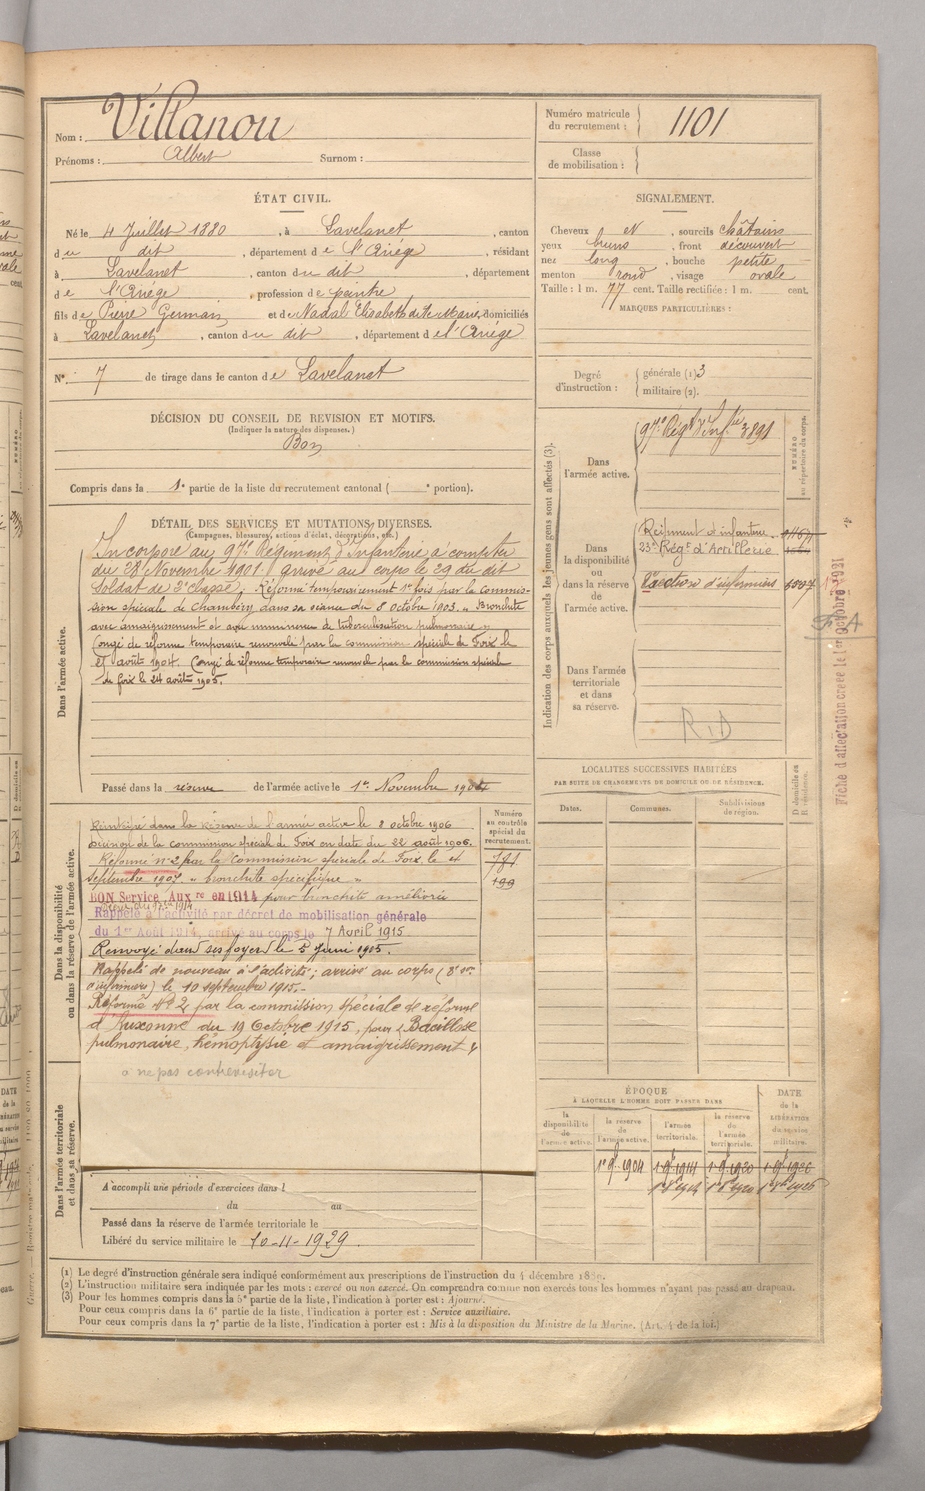 Nom : Villanou
Prénoms : Albert Surnom :
Numéro matricule
du recrutement : 1101
Classe
de mobilisation :
ÉTAT CIVIL.
Né le 4 Juillet 1880, à Lavelanet, canton
du dit, département de l'Ariège, résidant
à Lavelanet, canton du dit, département
de l'Ariège, profession de peintre,
fils de Pierre Germain et de Nadal Elisabeth dite Marie, domiciliés
à Lavelanet, canton du dit, département de l'Ariège
N° 7 de tirage dans le canton de Lavelanet
SIGNALEMENT.
Cheveux et, sourcils châtains
yeux bruns, front découvert
nez long, bouche petite
menton rond, visage ovale
Taille : 1 m. 77 cent. Taille rectifiée : 1 m. cent.
MARQUES PARTICULIÈRES :
Degré
d'instruction :
générale (1) 3
militaire (2).
DÉCISION DU CONSEIL DE REVISION ET MOTIFS.
(Indiquer la nature des dispenses.)
Bon
Compris dans la 1e partie de la liste du recrutement cantonal ( e portion).
DÉTAIL DES SERVICES ET MUTATIONS DIVERSES.
(Campagnes, blessures, actions d'éclat, décorations, etc.)
Dans l'armée active.
Incorporé au 97e Régiment d'Infanterie à compter
du 28 Novembre 1901. arrivé au corps le 29 du dit
Soldat de 2e classe. Réformé temporairement 1re fois par la commis-
sion spéciale de Chambéry dans sa séance du 8 octobre 1903. " Bronchite
avec amaigrissement et avec imminence de tuberculisation pulmonaire "
Congé de réforme temporaire renouvelé par la commission spéciale de Foix le
août 1904. Congé de réforme temporaire renouvelé par la commission spéciale
de foix le 24 août 1905.
Passé dans la réserve de l'armée active le 1er Novembre 1904
Indication des corps auxquels les jeunes gens sont affectés (3).
Dans
l'armée active.
97e Régt d'Infie 3891
NUMÉRO
au répertoire du corps.
Dans
la disponibilité
ou
dans la réserve
de
l'armée active.
Régiment d'infanterie
23e Régt d'Artillerie
Section d'infirmiers
Dans l'armée
territoriale
et dans
sa réserve.
R.D
F A
Fiche d'affectation créée le 1er Octobre 1921
LOCALITÉS SUCCESSIVES HABITÉES
PAR SUITE DE CHANGEMENTS DE DOMICILE OU DE RÉSIDENCE.
Dates.
Communes.
Subdivisions
de région.
D domicile ou
R résidence.
Dans la disponibilité
ou dans la réserve de l'armée active.
Numéro
au contrôle
spécial du
recrutement.
181
199
Réintégré dans la réserve de l'armée active le 8 octobre 1906
Décision de la commission spéciale de Foix en date du 22 août 1906.
Réformé n° 2 par la Commission spéciale de Foix le
septembre 1907. " bronchite spécifique "
BON Service Auxre en 1914 pour bronchite améliorée
Rappelé à l'activité par décret de mobilisation générale
du 1er Août 1914, arrivé au corps le 7 Avril 1915
Renvoyé dans ses foyers le 5 Juin 1915.
Rappelé de nouveau à l'activité ; arrivé au corps (8e on
d'infirmiers) le 10 septembre 1915.-
Réformé N° 2 par la commission spéciale de réforme
d'Auxonne du 19 Octobre 1915, pour "Bacillose
pulmonaire, hémoptysie et amaigrissement "
à ne pas contrevisiter
Dans l'armée territoriale
et dans sa réserve.
A accompli une période d'exercices dans l
du au
Passé dans la réserve de l'armée territoriale le
Libéré du service militaire le 10-11-1929.
ÉPOQUE
À LAQUELLE L'HOMME DOIT PASSER DANS
la
disponibilité
de
l'armée active.
la réserve
de
l'armée active.
l'armée
territoriale.
la réserve
de
l'armée
territoriale.
DATE
de la
LIBÉRATION
du service
militaire.
1er 9bre 1904 1er 9bre 1914 1er 9bre 1920 1er 9bre 1926
(1) Le degré d'instruction générale sera indiqué conformément aux prescriptions de l'instruction du 4 décembre 1889.
(2) L'instruction militaire sera indiquée par les mots : exercé ou non exercé. On comprendra comme non exercés tous les hommes n'ayant pas passé au drapeau.
(3) Pour les hommes compris dans la 5e partie de la liste, l'indication à porter est : Ajourné.
Pour ceux compris dans la 6e partie de la liste, l'indication à porter est : Service auxiliaire.
Pour ceux compris dans la 7e partie de la liste, l'indication à porter est : Mis à la disposition du Ministre de la Marine. (Art. 4 de la loi.)